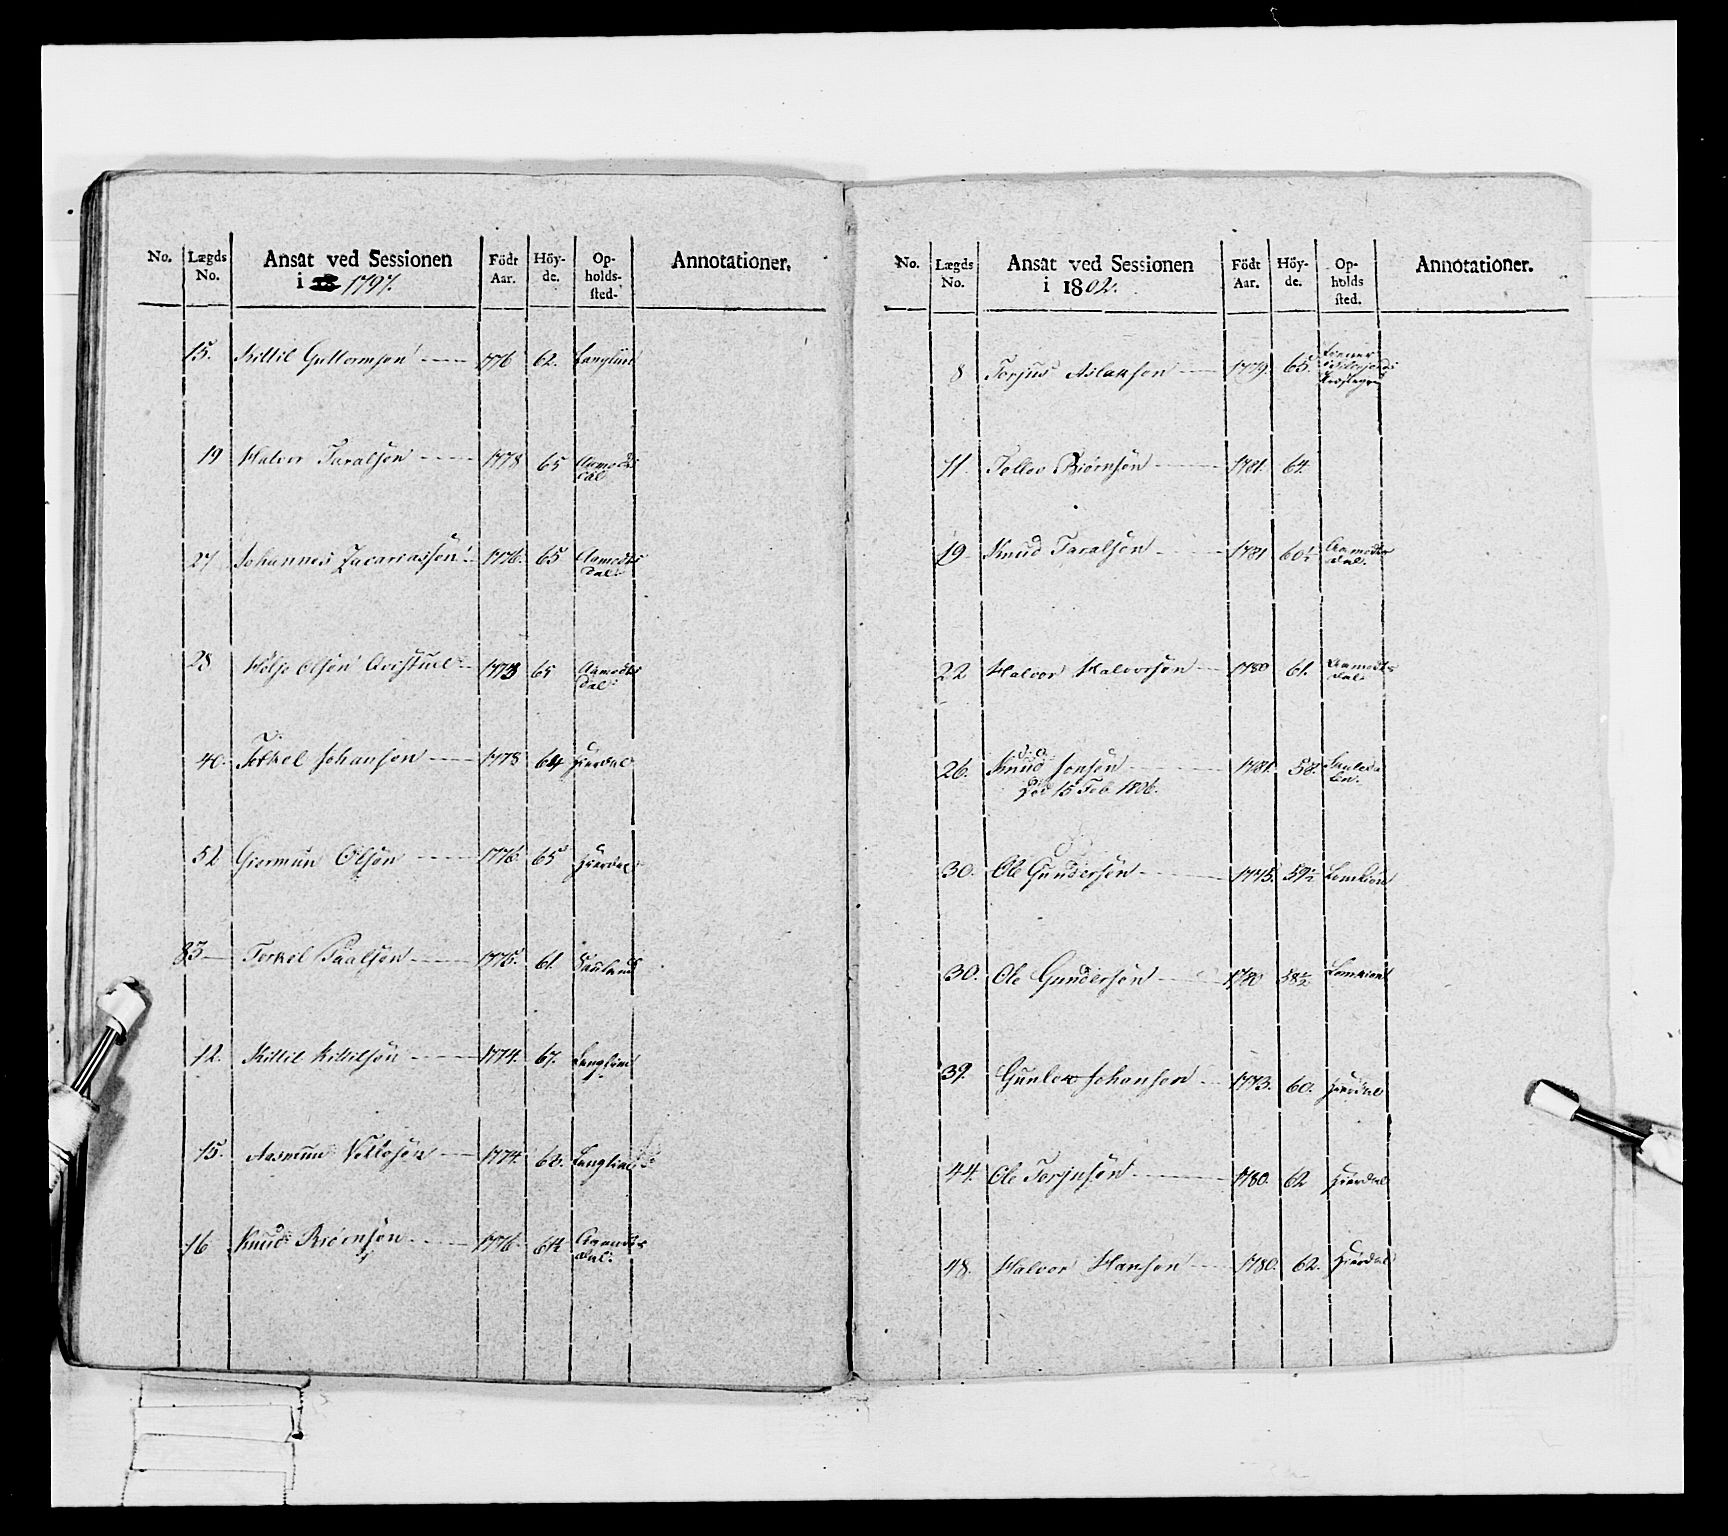 No. Lægds No. Ansat ved Sessionen i 1797. Födt Aar. Höy-de. Op-holds-sted. Annotationer.
15. Kittil Guttormsen 1776 62. Langlim
19 Halvor Taralsen 1778 65 Aamodts dal
27 Johannes Zacariassen 1776. 65 Aamodts dal.
28 Olsen 1773 65 Aamodts dal
40. Torkel Johansen 1778 64 Hierdal
52 Giermun Olsen 1776 65 Hierdal
83 Torkel Paalsen 1775. 61. Sauland
12. Kittil Kittilsen 1774. 67. Langlim
15. Aasmun 1774. 60. Langlim
16 Knud Biörnsen 1776 Aamodts dal.
No. Lægds No. Ansat ved Sessionen i 1802. Födt Aar. Höy-de. Op-holds sted. Annotationer.
8 Torjus Aslaksen 1779. 65.
11. Tollev Biörnsen 1781. 64.
19. Knud Taralsen 1781 60½ Aamodts dal.
22 Halvor Halvorsen 1780 61. Aamodts dal.
26. Knud Jonsen 1781. 58.
Död 15 Feb 1806.
30. Ole Gundersen 1775. 59½
30. Ole Gundersen 1780 58½
39. Gunlew Johansen 1773. 60. Hierdal
44. Ole Torjusen 1780. 62 Hierdal
48. Halvor Hansen 1780. 62. Hierdal